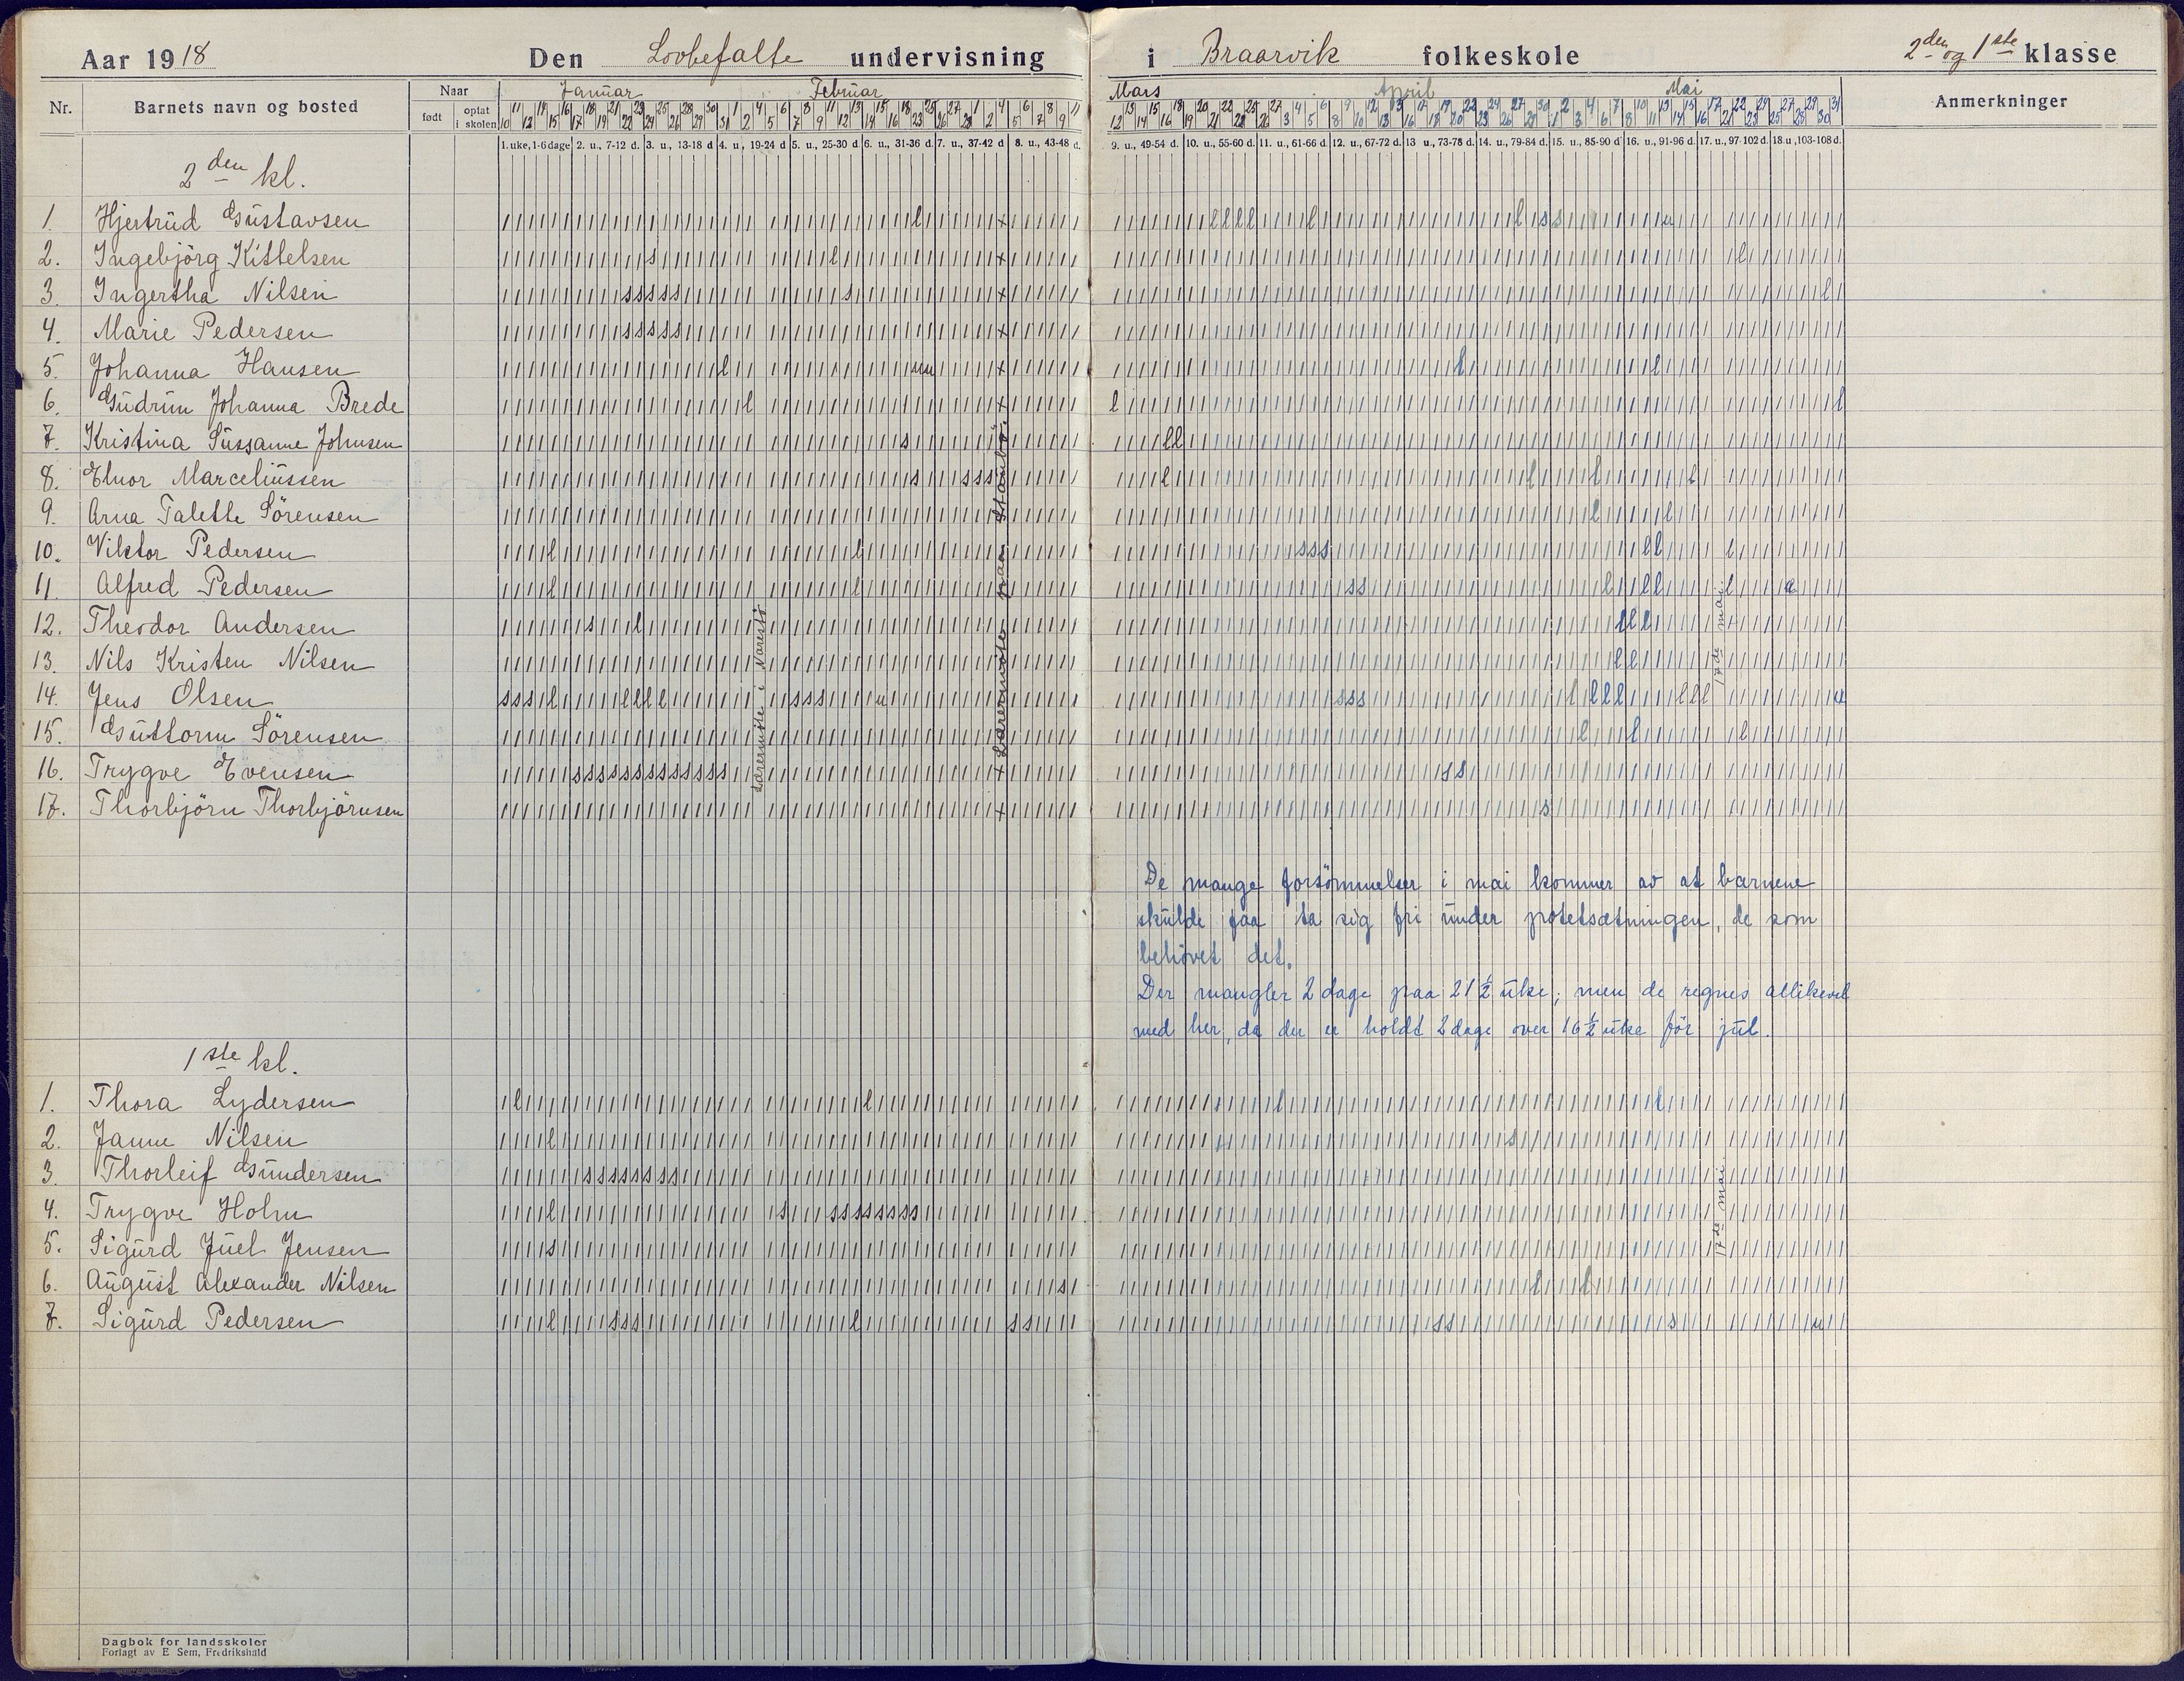 Aar 1918 Den Lovbefalte undervisning i Braarvik folkeskole 2den og 1ste klasse
Nr. Barnets navn og bosted Naar født optat i skolen Januar Februar Mars April Mai Anmerkninger
1. uke, 1-6 dage 2. u., 7-12 d. 3. u., 13-18 d 4. u., 19-24 d 5. u., 25-30 d 6. u., 31-36 d. 7. u., 37-42 d 8. u., 43-48 d. 9. u., 49-54 d. 10. u., 55-60 d. 11. u., 61-66 d. 12. u., 67-72 d. 13 u., 73-78 d. 14. u., 79-84 d. 15. u., 85-90 d 16. u., 91-96 d. 17. u., 97-102 d. 18. u., 103-108 d.
2den kl.
1. Hjertrud Gustavsen
2. Ingebjörg Kittelsen
3. Ingertha Nilsen
4. Marie Pedersen
5. Johanna Hansen
6. Gudrun Johanna Brede
7. Kristina Sussanne Johnsen
8. Elnor Marceliussen
9. Arna Talette Sörensen
10. Viktor Pedersen
11. Alfred Pedersen
12. Theodor Andersen
13. Nils Kristen Nilsen
14. Jens Olsen
15. Guttorm Sörensen
16. Trygve Evensen
17. Thorbjörn Thorbjörnsen
Lærermöte i Narestö
+ Lærermöte paa Staubö.
17de mai
De mange forsömmelser i mai kommer av at barnene
skulde faa ta sig fri under potetsætningen, de som
behövet det.
Der mangler 2 dage paa 21 1/2 uke; men de regnes allikevel
med her, da der er holdt 2 dage over 16 1/2 uke för jul.
1ste kl.
1. Thora Lydersen
2. Janne Nilsen
3. Thorleif Gundersen
4. Trygve Holm
5. Sigurd Juel Jensen
6. August Alexander Nilsen
7. Sigurd Pedersen
17de mai.
Dagbok for landsskoler
Forlagt av E Sem, Fredrikshald